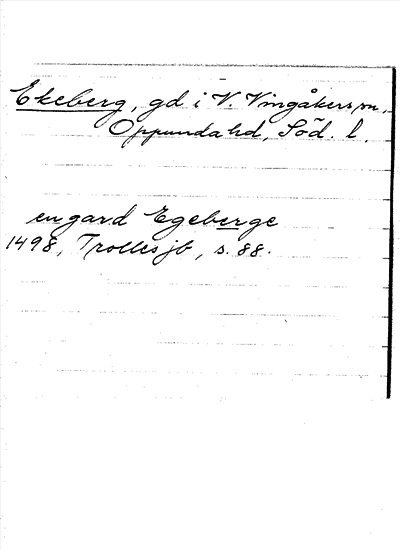 Ekeberg, gd i V. Vingåkers sn,
Oppunda hd, Söd. l.
en gard Egeberge
1498, Trolles jb, s. 88.